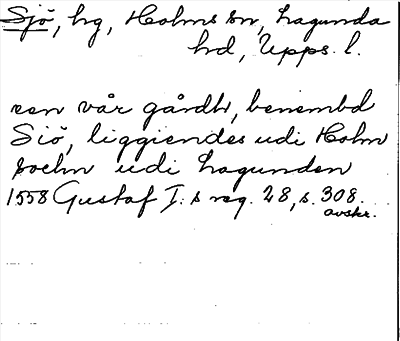 Sjö, hg, Holms sn, Lagunda
hd, Upps. l.
een vår gårdh, benembd
Siö, liggiendes udi Holm
sochn udi Lagunden
1558 Gustaf I:s reg. 28, s. 308.
avskr.